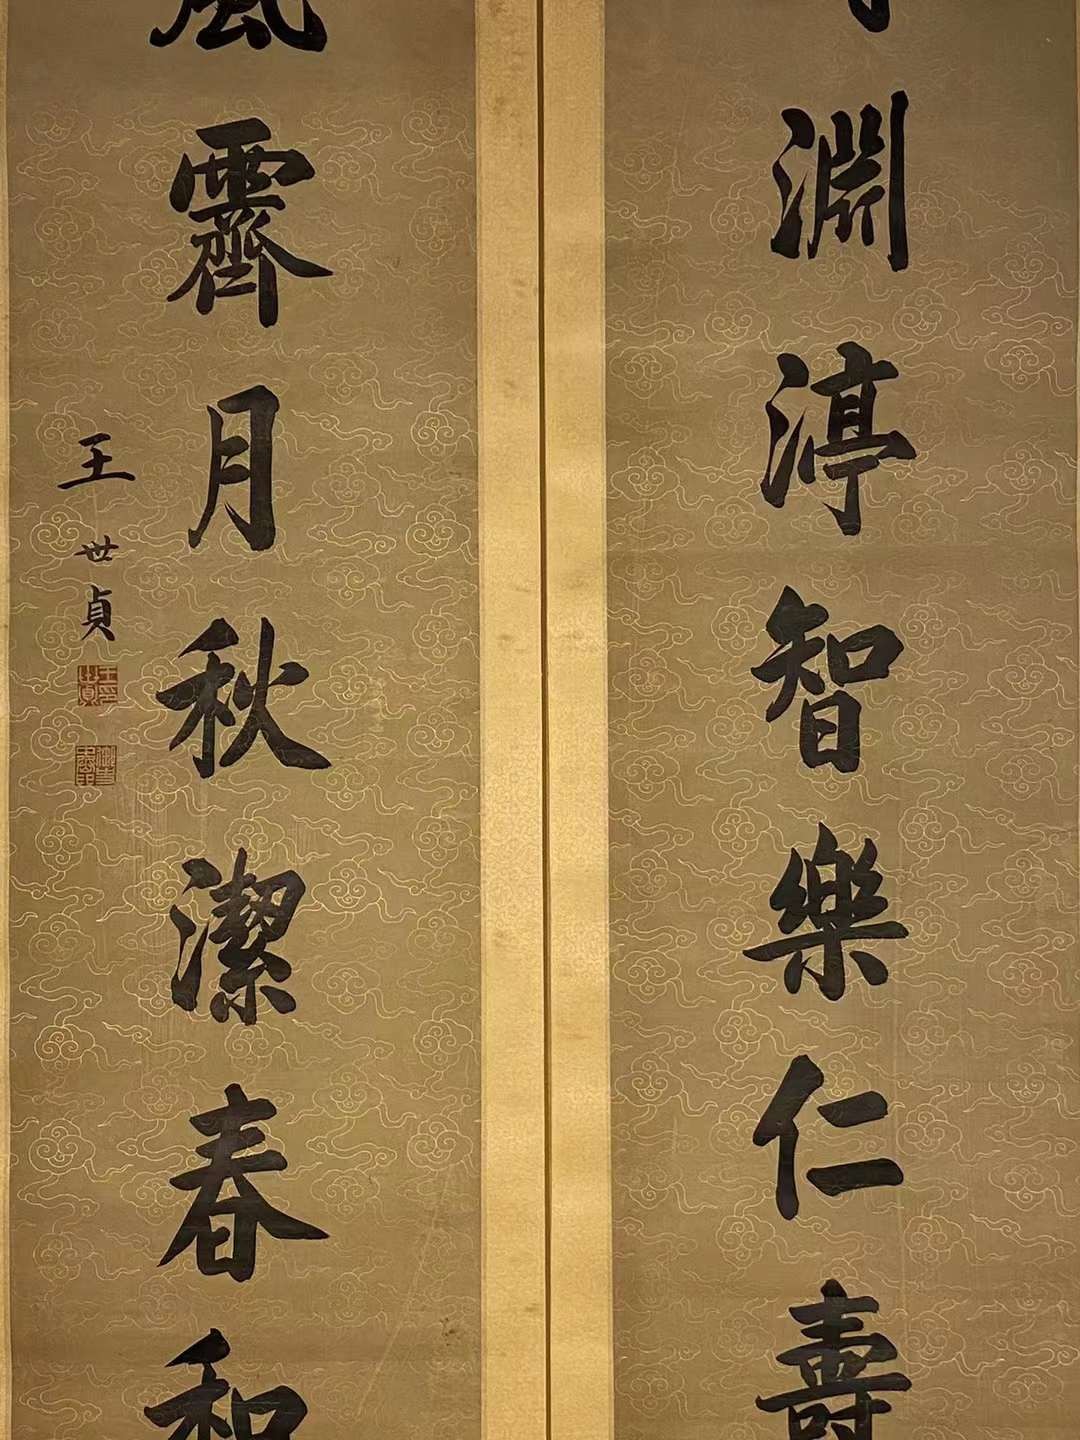 淵渟智樂仁壽
風霽月秋潔春和
王世貞